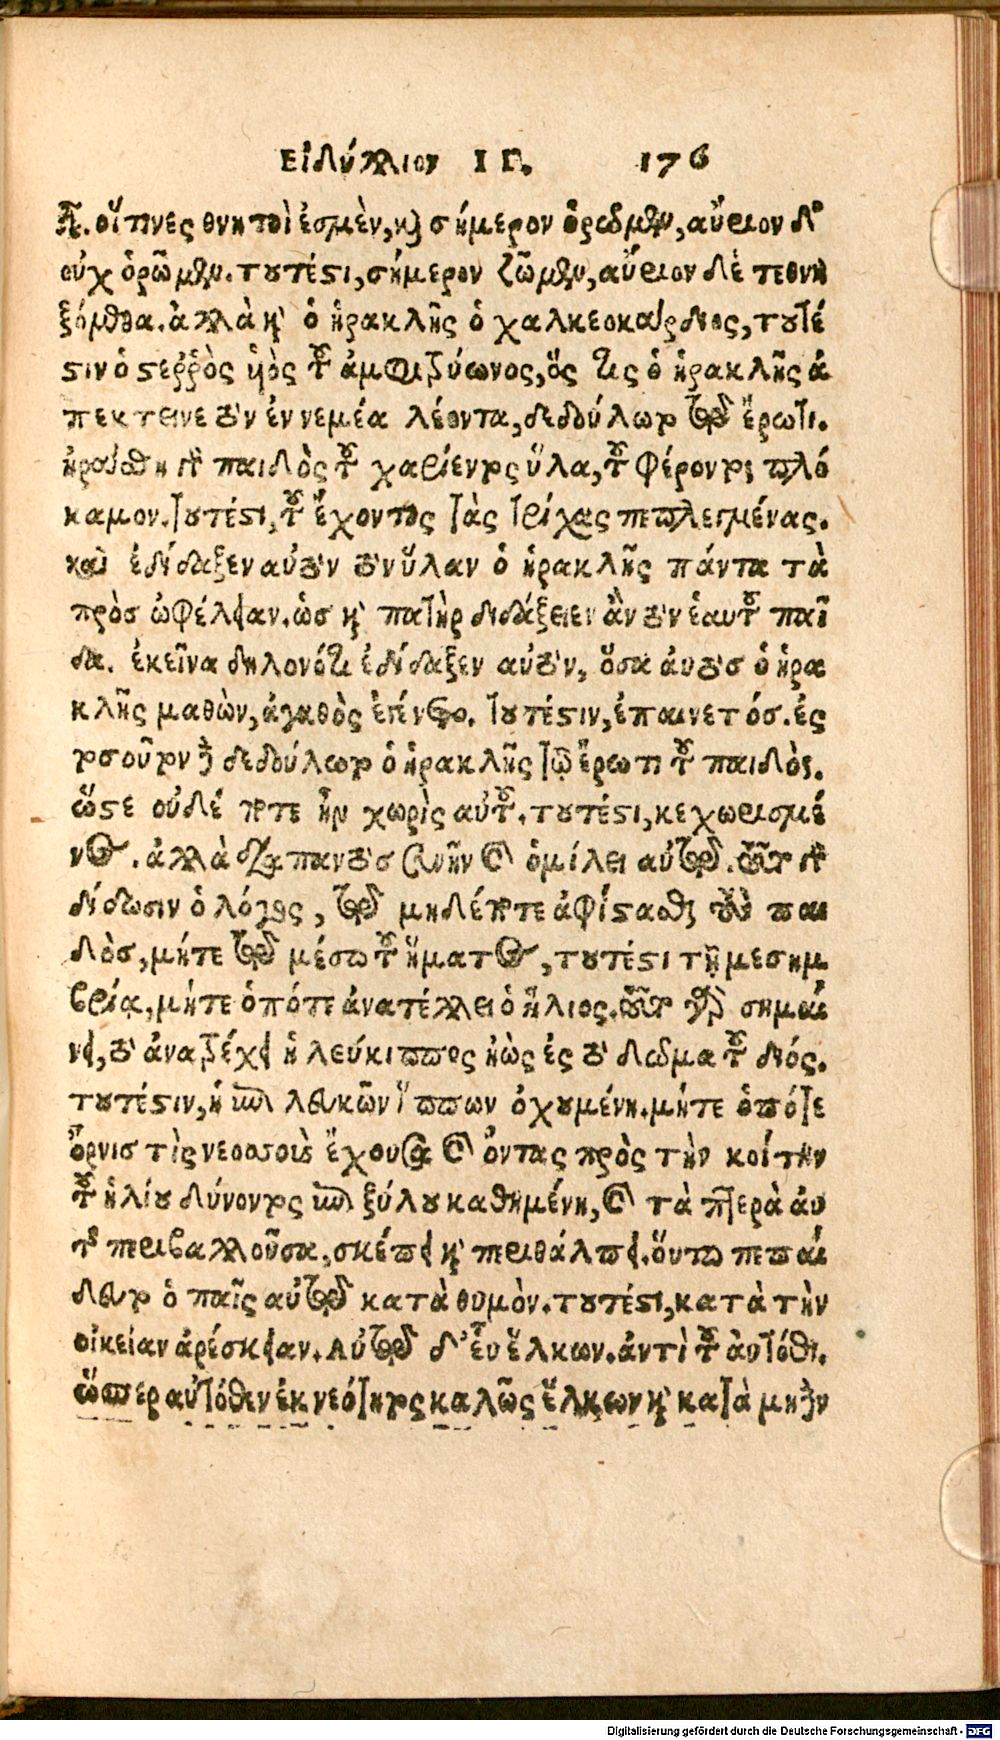 Εἰδύλλιον ΙΓ. 176
τα. οἵτινες θνητοὶ ἐσμὲν, καὶ σήμερον ὁρῶμεν, αὔριον δ'
οὐχ ὁρῶμεν. τουτέστι, σήμερον ζῶμεν, αὔριον δὲ τεθνη
ξόμεθα. ἀλλὰ καὶ ὁ ἡρακλῆς ὁ χαλκεοκάρδιος, τουτέ
στιν ὁ στερρὸς ὑιὸς τοῦ ἀμφιτρύωνος, ὅς τις ὁ ἡρακλῆς ἀ
πεκτεινε τὸν ἐν νεμέα λέοντα, δεδούλωτο τῷ ἔρωτι.
ἠράσθη τε παιδὸς τοῦ χαρίεντος ὕλα, τοῦ φέροντος πλό
καμον. τουτέστι, τοῦ ἔχοντος τὰς τρίχας πεπλεγμένας.
καὶ ἐδίδαξεν αὐτὸν τὸν ὕλαν ὁ ἡρακλῆς πάντα τὰ
πρὸσ ὠφέλειαν. ὡσ καὶ πατὴρ διδάξειεν ἂν τὸν ἑαυτοῦ παῖ
δα. ἐκεῖνα δηλονότι ἐδίδαξεν αὐτὸν, ὅσα ἀυτὸσ ὁ ἡρα
κλῆς μαθὼν, ἀγαθὸς ἐγένετο. τουτέστιν, ἐπαινετόσ. ἐς
τοσοῦτον δὲ δεδούλωτο ὁ ἡρακλῆς τῷ ἔρωτι τοῦ παιδὸς.
ὥστε οὐδέποτε ἦν χωρὶς αὐτοῦ. τουτέστι, κεχωρισμέ
νος. ἀλλὰ διαπαντὸσ συνῆν καὶ ὁμίλει αὐτῷ. τοῦτο τε
δίδωσιν ὁ λόγος, τῷ μηδέποτε ἀφίστασθαι τοῦ παι
δὸσ, μήτε τῷ μέσω τοῦ ἥματος, τουτέστι τῇ μεσημ
βρία, μήτε ὁπότε ἀνατέλλει ὁ ἥλιος. τοῦτο γὰρ σημαί
νει, τὸ ἀνατρέχει ἡ λεύκιππος ἠὼς ἐς τὸ δῶμα τοῦ διός.
τουτέστιν, ἡ ἐπὶ λευκῶν ἵππων ὀχουμένη. μήτε ὁπότε
ὄρνισ τὶς νεοσσοὺς ἔχουσα καὶ ὄντας πρὸς τὴν κοίτην
τοῦ ἡλίου δύνοντος ἐπὶ ξύλου καθημένη, καὶ τὰ πτερὰ ἀυ
τοῦ περιβαλλοῦσα, σκέπει καὶ περιθάλπει. ὅυτω πεπαί
δευτο ὁ παῖς αὐτῷ κατὰ θυμὸν. τουτέστι, κατὰ τὴν
οἰκείαν ἀρέσκειαν. Αὐτῷ δ' εὖ ἕλκων. ἀντὶ τοῦ ἀυτόθι.
ὥσπερ αὐτόθεν ἐκ νεότητος καλῶς ἕλκων καὶ κατὰ μηδὲν
Digitalisierung gefördert durch die Deutsche Forschungsgemeinschaft - DFG